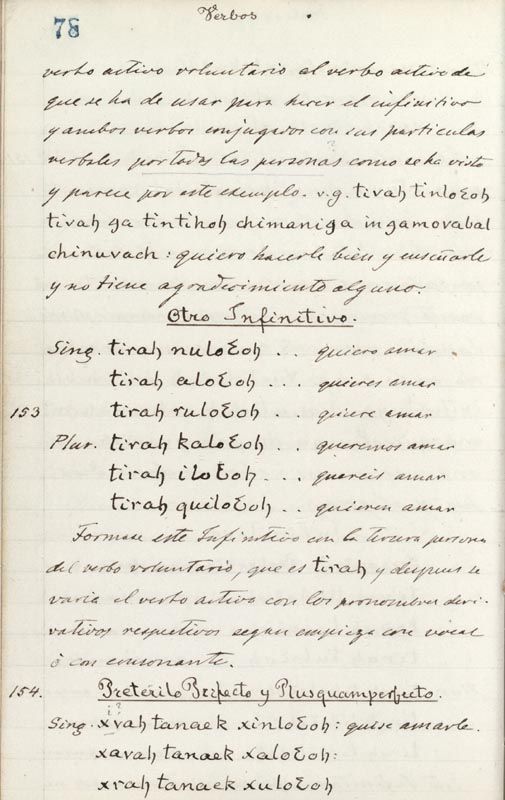 Verbos
78
verbo activo voluntario al verbo activo de
que se ha de usar para hacer el infinitivo
y ambos verbos conjugados con sus particulas
verbales por todas las personas como se ha visto
y parece por este exemplo. v.g. tivaḩ tinloƐoḩ
tivaḩ ga tintihoḩ chimaniga ingamovabal
chinuvach: quiero hacerle bien y enseñarle
y no tiene agradecimiento alguno.
Otro Infinitivo.
Sing. tiraḩ nuloƐoḩ ... quiero amar
tiraḩ aloƐoḩ ... quieres amar
153 tiraḩ ruloƐoḩ ... quiere amar
Plur. tiraḩ kaloƐoḩ ... queremos amar
tiraḩ iloƐoḩ ... quereis amar
tiraḩ quiloƐoḩ ... quieren amar
Formase este Infinitivo con la tercera persona
del verbo voluntario, que es tiraḩ y despues se
varia el verbo activo con los pronombres deri-
vativos respectivos segun empieza con vocal
ò con consonante.
154. Preterito Perfecto y Plusquamperfecto.
i?
Sing. xvaḩ tanaek xinloƐoḩ: quise amarle.
xavaḩ tanaek xaloƐoḩ:
xraḩ tanaek xuloƐoḩ